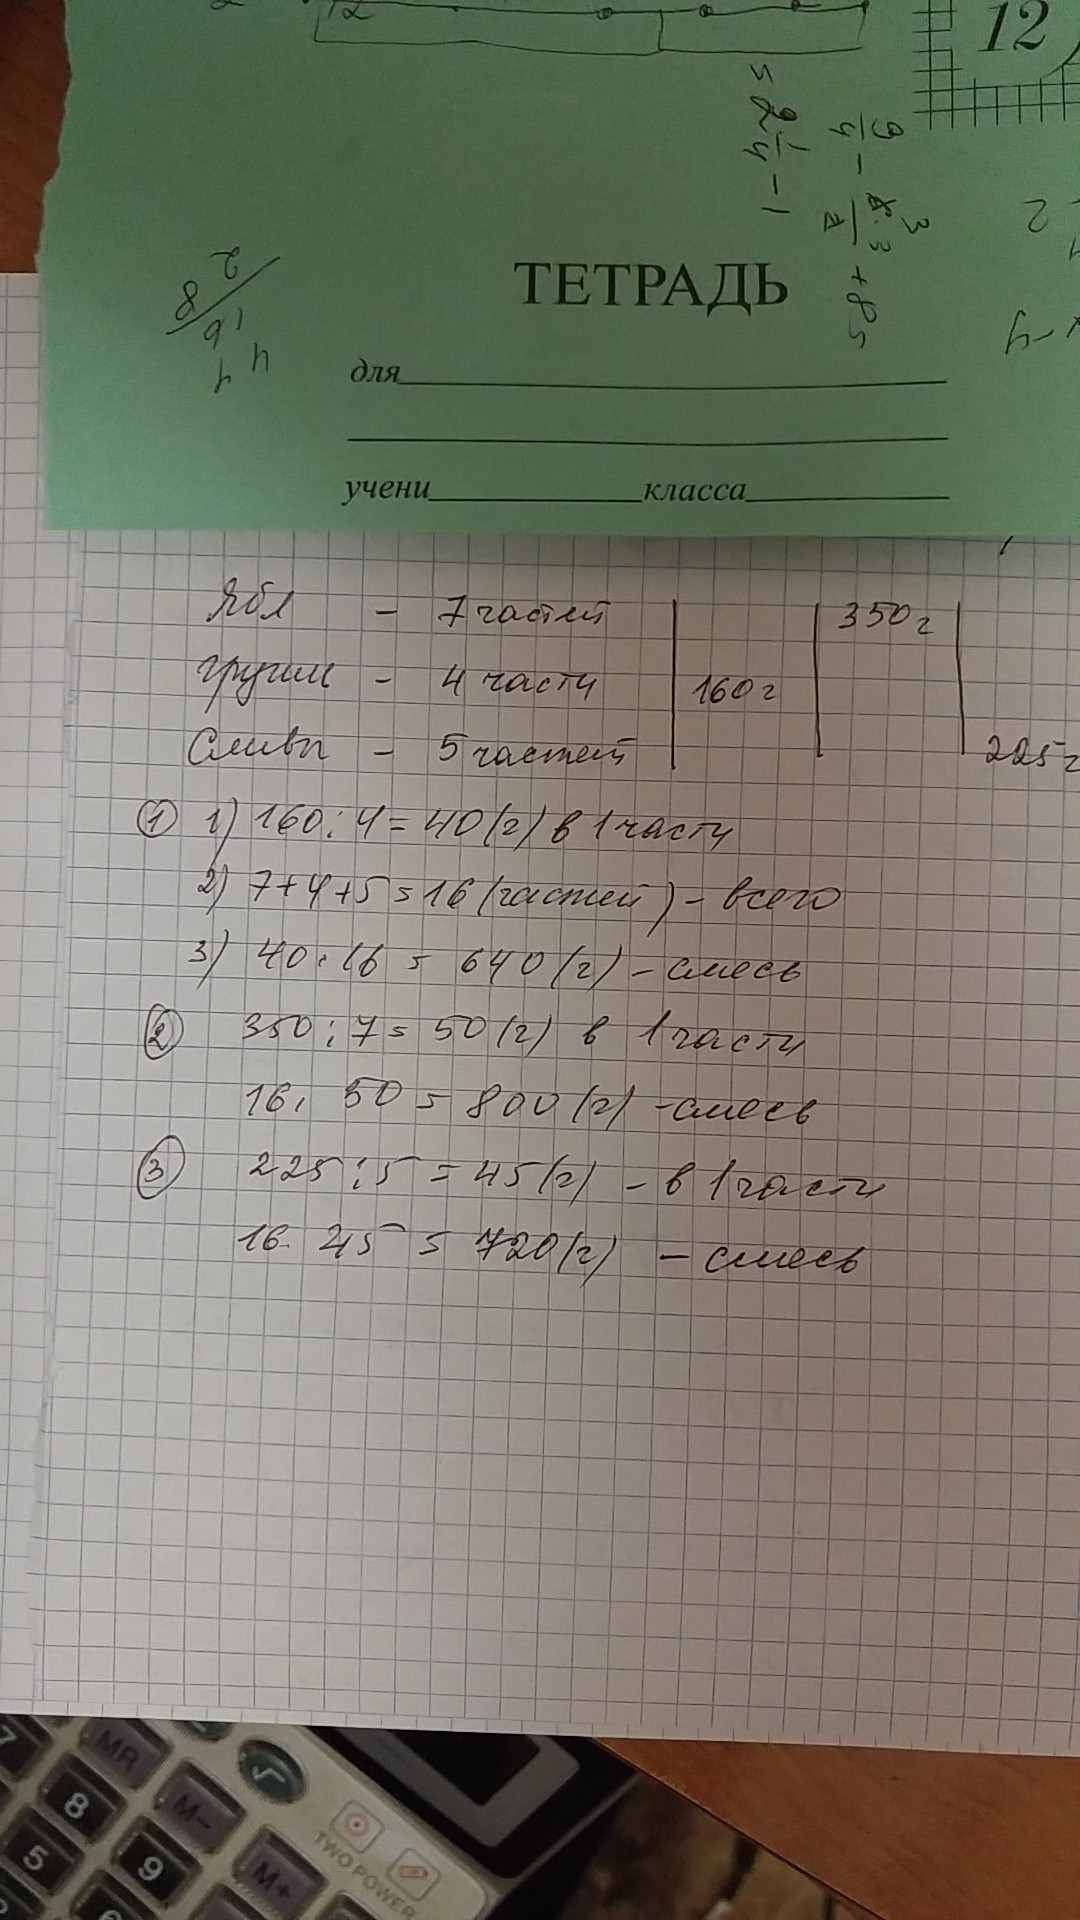 12
12
= 2 1/4 - 1
ТЕТРАДЬ
для
учени класса
Ябл - 7 частей 350г
груши - 4 части 160г
Сливы - 5 частей 225г
① 1) 160 : 4 = 40 (г) в 1 части
2) 7+4+5 = 16 (частей) - всего
3) 40 · 16 = 640 (г) - смесь
② 350 : 7 = 50 (г) в 1 части
16 · 50 = 800 (г) - смесь
③ 225 : 5 = 45 (г) - в 1 части
16 · 45 = 720 (г) - смесь
MR
8 M-
5 9 M+
TWO POWER